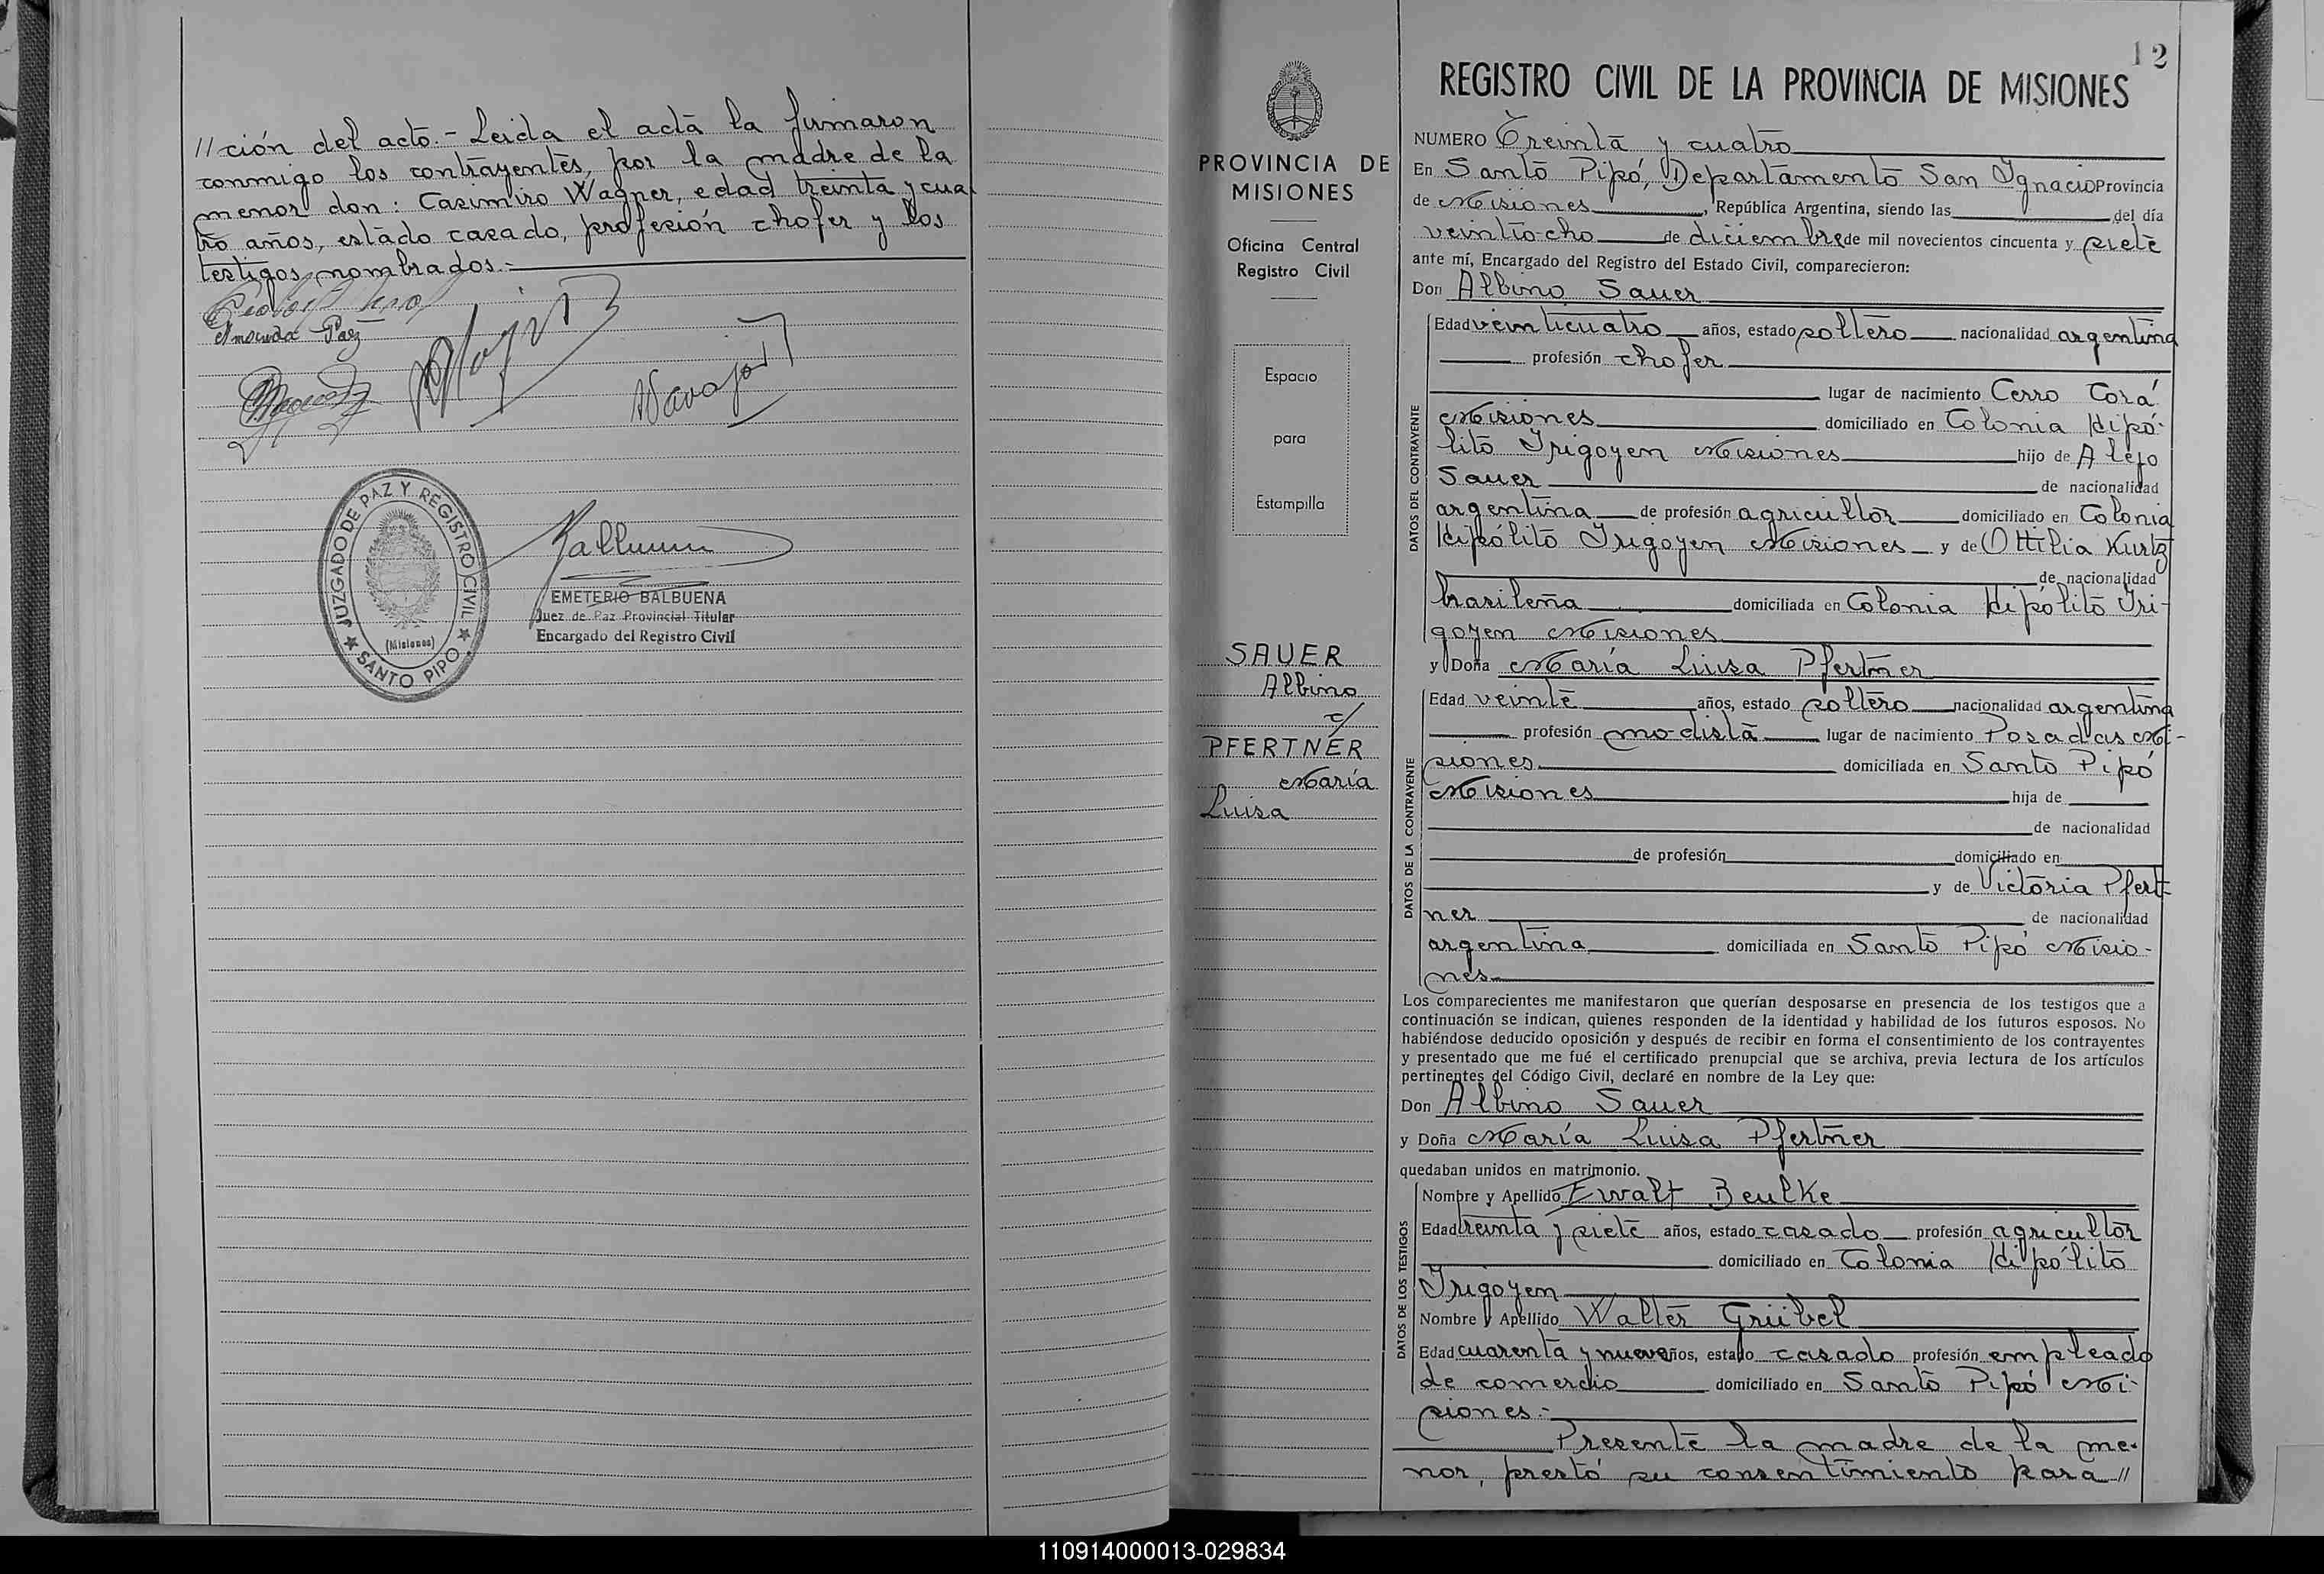 //ción del acto.- Leida el acta la firmaron
conmigo los contrayentes, por la madre de la
menor don: Casimiro Wagner, edad treinta y cua
tro años, estado casado, profesión chofer y los
testigos nombrados.-
Amanda Paz
JUZGADO DE PAZ Y REGISTRO CIVIL
(Misiones)
SANTO PIPO
EMETERIO BALBUENA
Juez de Paz Provincial Titular
Encargado del Registro Civil
12
PROVINCIA DE
MISIONES
Oficina Central
Registro Civil
Espacio
para
Estampilla
SAUER
Albino
c/
PFERTNER
María
Luisa
REGISTRO CIVIL DE LA PROVINCIA DE MISIONES
NUMERO Treinta y cuatro
En Santo Pipó, Departamento San Ignacio Provincia
de Misiones, República Argentina, siendo las del día
veintiocho de diciembre de mil novecientos cincuenta y siete
ante mí, Encargado del Registro del Estado Civil, comparecieron:
Don Albino Sauer
DATOS DEL CONTRAYENTE
Edad veinticuatro años, estado soltero nacionalidad argentina
profesión chofer
lugar de nacimiento Cerro Corá
Misiones domiciliado en Colonia Hipó-
lito Irigoyen Misiones hijo de Alejo
Sauer de nacionalidad
argentina de profesión agricultor domiciliado en Colonia
Hipólito Irigoyen Misiones y de Ottilia Kurtz
de nacionalidad
brasileña domiciliada en Colonia Hipólito Iri-
goyen Misiones
y Doña María Luisa Pfertner
DATOS DE LA CONTRAYENTE
Edad veinte años, estado soltero nacionalidad argentina
profesión modista lugar de nacimiento Posadas Mi-
siones domiciliada en Santo Pipó
Misiones hija de
de nacionalidad
de profesión domiciliado en
y de Victoria Pfert-
ner de nacionalidad
argentina domiciliada en Santo Pipó Misio-
nes
Los comparecientes me manifestaron que querían desposarse en presencia de los testigos que a
continuación se indican, quienes responden de la identidad y habilidad de los futuros esposos. No
habiéndose deducido oposición y después de recibir en forma el consentimiento de los contrayentes
y presentado que me fué el certificado prenupcial que se archiva, previa lectura de los artículos
pertinentes del Código Civil, declaré en nombre de la Ley que:
Don Albino Sauer
y Doña María Luisa Pfertner
quedaban unidos en matrimonio.
DATOS DE LOS TESTIGOS
Nombre y Apellido Ewalt Beulke
Edad treinta y siete años, estado casado profesión agricultor
domiciliado en Colonia Hipólito
Irigoyen
Nombre y Apellido Walter Grübel
Edad cuarenta y nueve años, estado casado profesión empleado
de comercio domiciliado en Santo Pipó Mi-
siones.-
Presente la madre de la me-
nor, prestó su consentimiento para //
110914000013-029834